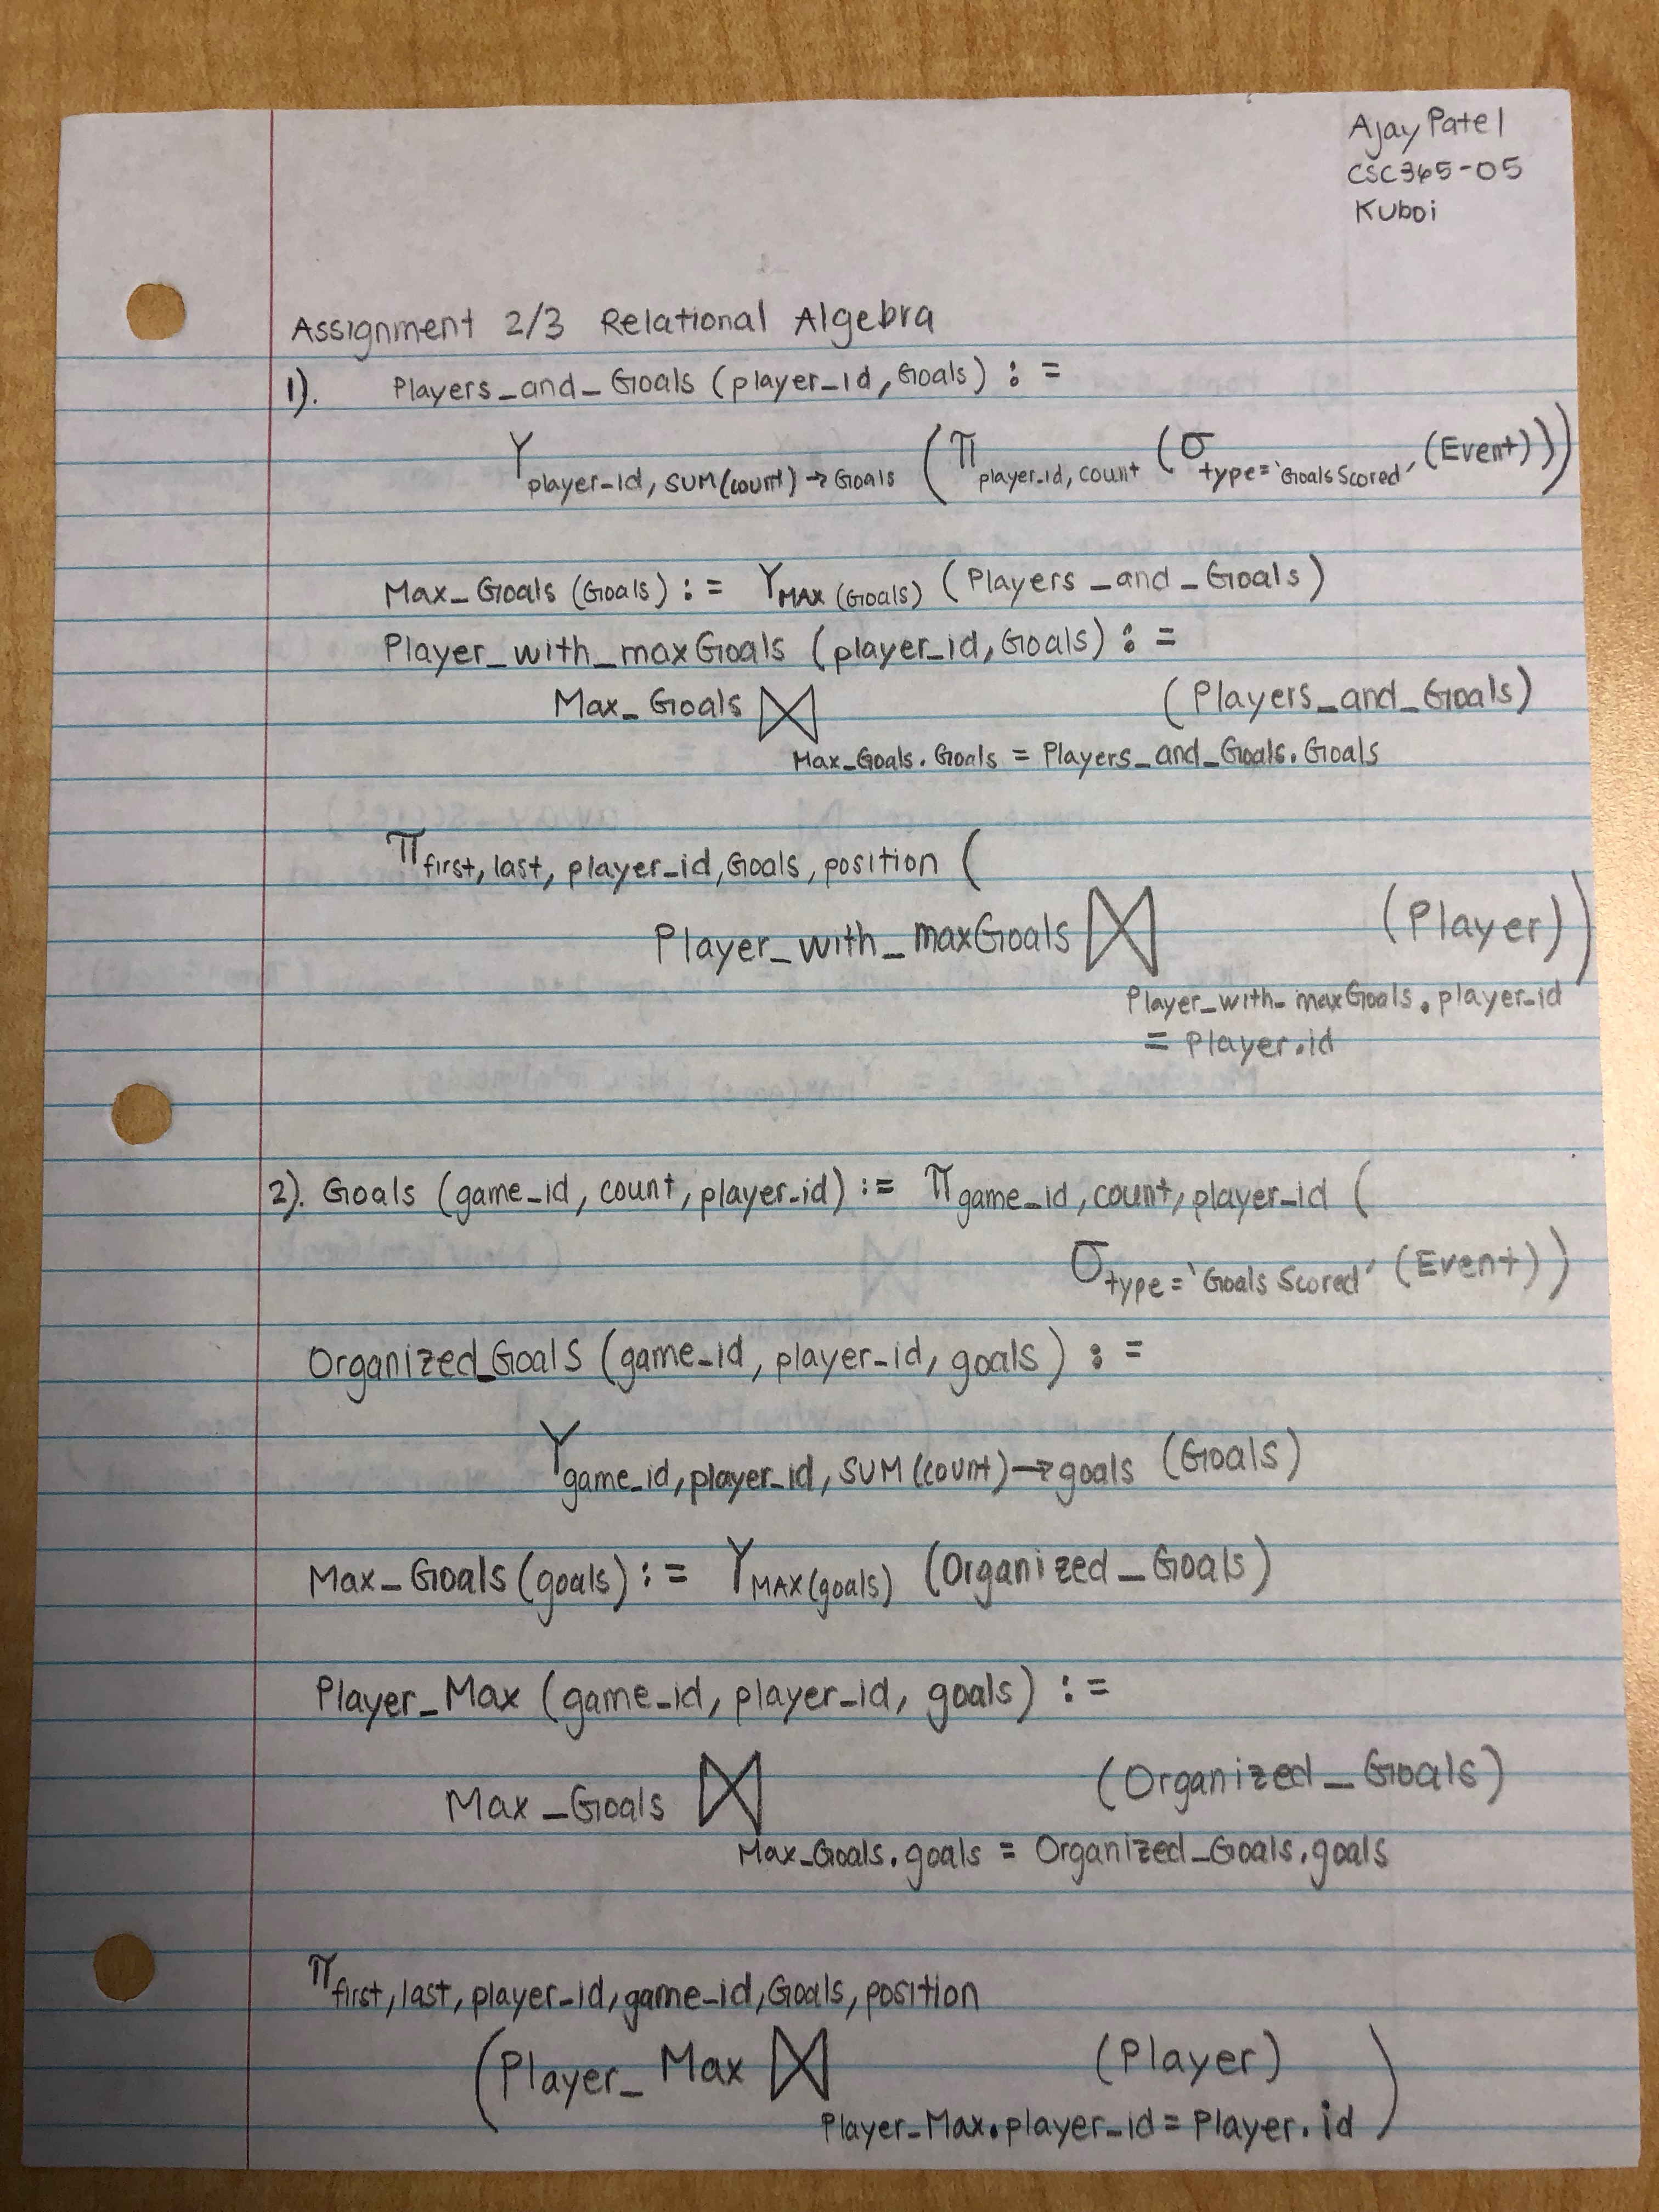 Ajay Patel
CSC365-05
Kuboi
Assignment 2/3 Relational Algebra
1). Players_and_Goals (player_id, Goals) : =
γ player_id, SUM(count) → Goals (π player_id, count (σ type='Goals Scored' (Event)))
Max_Goals (Goals) : = γ MAX (Goals) (Players_and_Goals)
Player_with_maxGoals (player_id, Goals) : =
Max_Goals ⋈ (Players_and_Goals)
Max_Goals.Goals = Players_and_Goals.Goals
π first, last, player_id, Goals, position (
Player_with_maxGoals ⋈ (Player))
Player_with_maxGoals.player_id
= Player.id
2). Goals (game_id, count, player_id) := π game_id, count, player_id (
σ type='Goals Scored' (Event))
Organized_Goals (game_id, player_id, goals) : =
γ game_id, player_id, SUM(count) → goals (Goals)
Max_Goals (goals) : = γ MAX(goals) (Organized_Goals)
Player_Max (game_id, player_id, goals) : =
Max_Goals ⋈ (Organized_Goals)
Max_Goals.goals = Organized_Goals.goals
π first, last, player_id, game_id, Goals, position
(Player_Max ⋈ (Player)
Player_Max.player_id = Player.id)